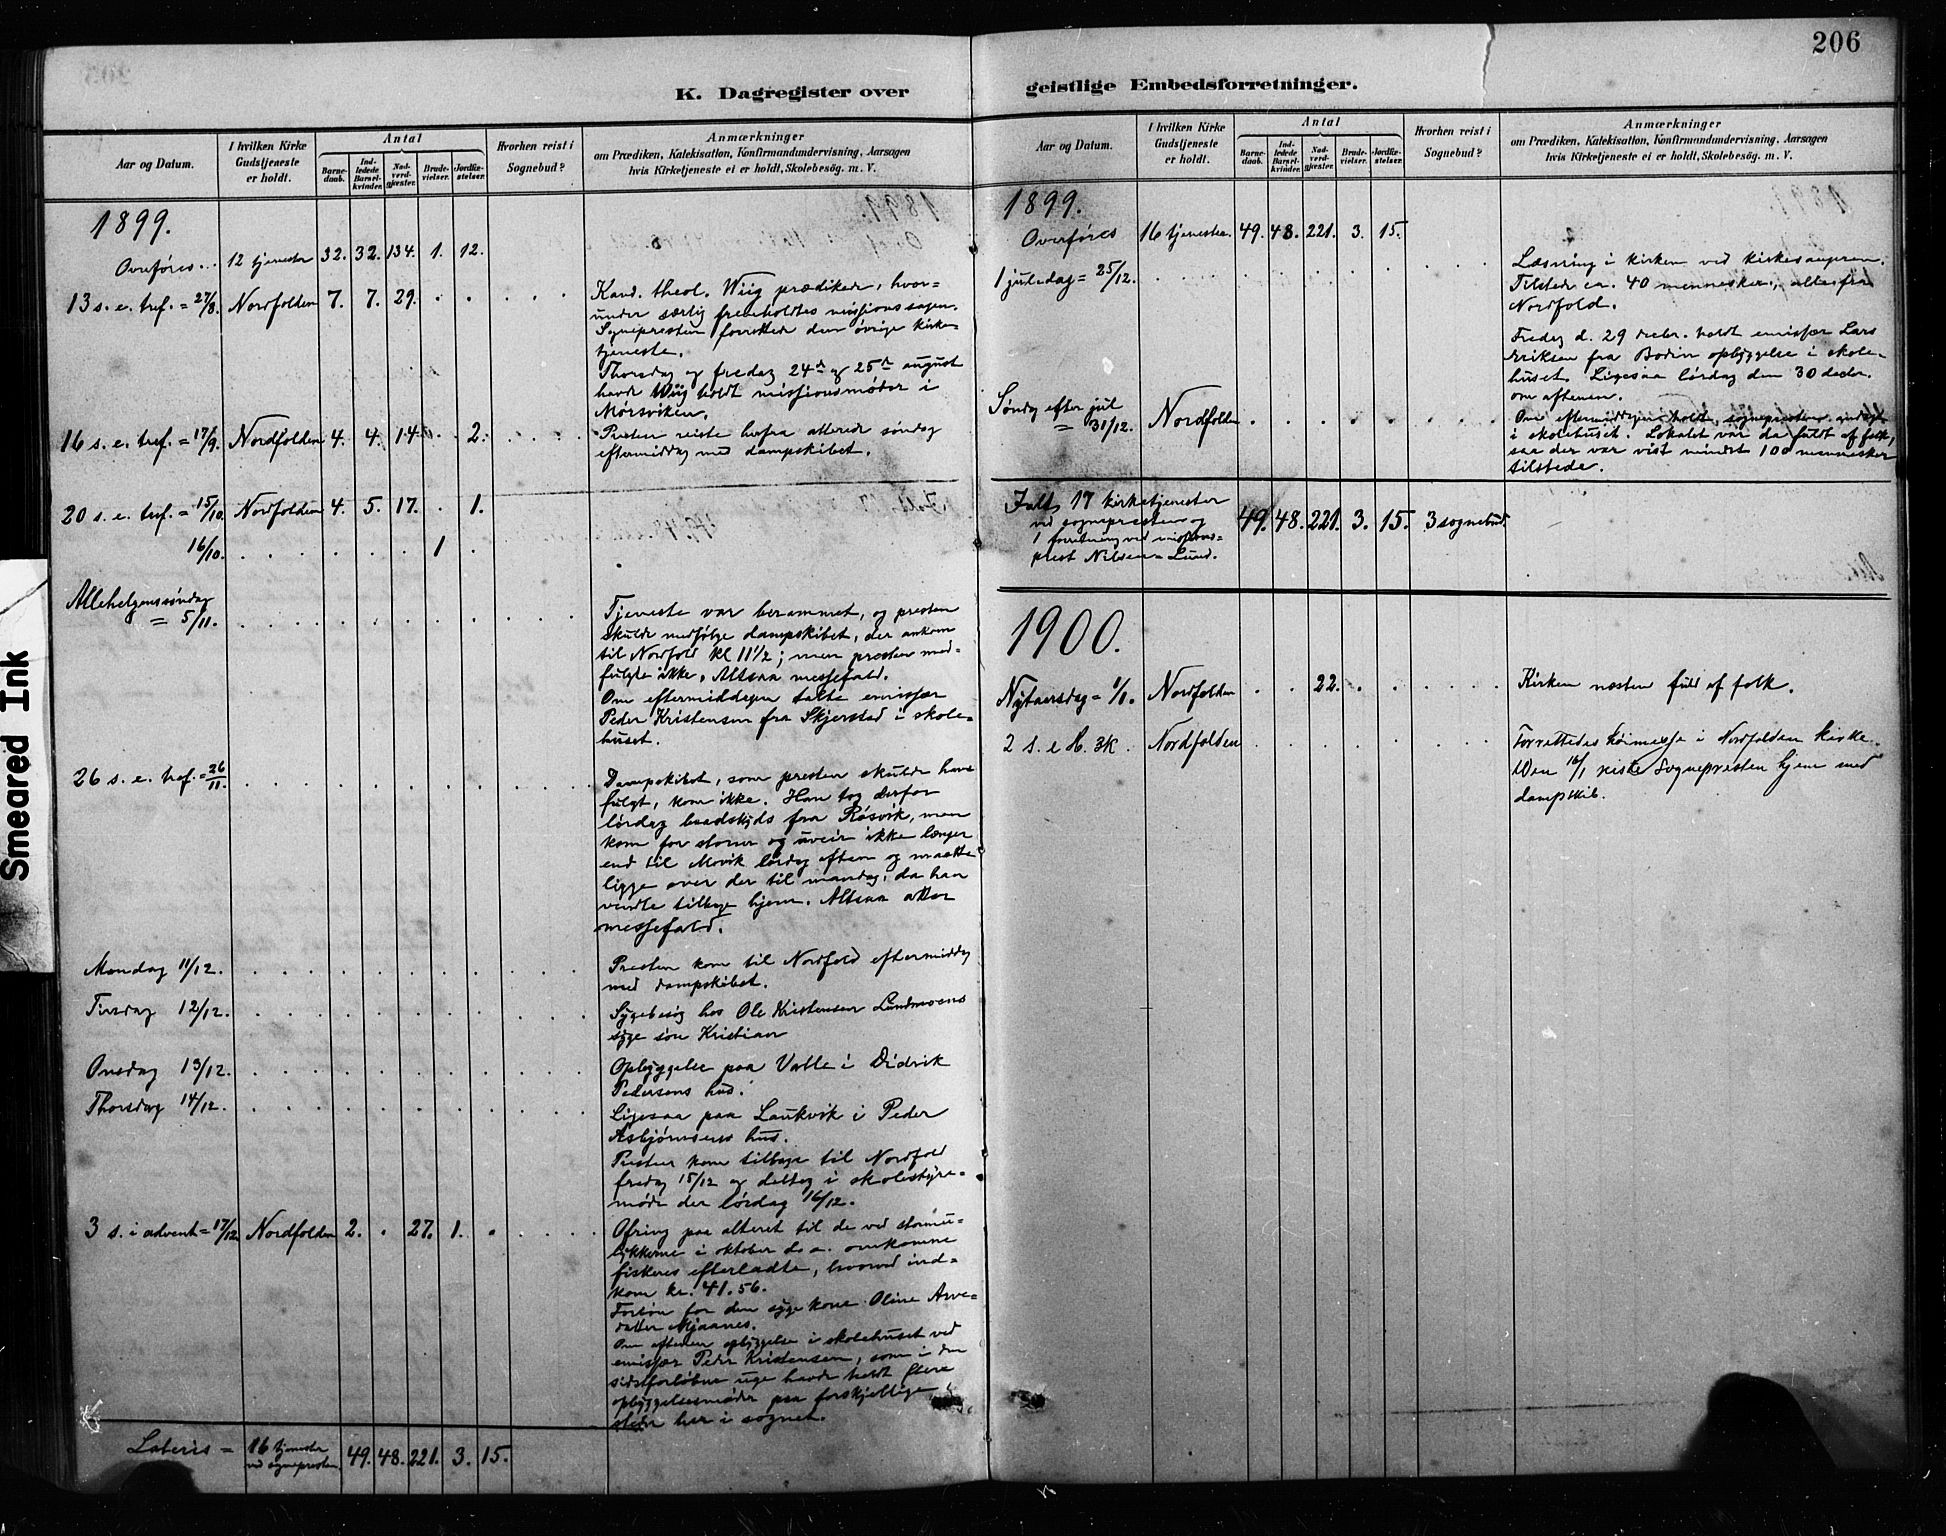 206
K. Dagregister over
geistlige Embedsforretninger.
Aar og Datum.
I hvilken Kirke
Gudstjeneste
er holdt.
Antal
Barne-
daab.
Ind-
ledede
Barsel-
kvinder.
Nad-
verd-
gjester.
Brude-
vielser.
Jordfæ-
stelser.
Hvorhen reist i
Sognebud?
Anmærkninger
om Prædiken, Katekisation, Konfirmandundervisning, Aarsagen
hvis Kirketjeneste ei er holdt, Skolebesøg. m. V.
1899.
Overføres... 12 tjenester 32. 32. 134. 1. 12.
13 s. e. tref. = 27/8. Nordfolden 7. 7. 29.
Kand. theol. Wiig prædikede, hvor-
under særlig fremholdtes missionssagen.
Sognepresten forrettede den øvrige kirke-
tjeneste.
Thorsdag og fredag 24de og 25de august
havde Wiig holdt missionsmøder i
Mørsviken.
16 s. e. tref. = 17/9. Nordfolden 4. 4. 14. 2.
Presten reiste herfra allerede søndag
eftermiddag med dampskibet.
20 s. e. tref. = 15/10. Nordfolden 4. 5. 17. 1.
16/10. 1
Allehelgenssøndag
= 5/11.
Tjeneste var berammet, og presten
skulde medfølge dampskibet, der ankom
til Nordfold kl 11 1/2; men presten med-
fulgte ikke. Altsaa messefald.
Om eftermiddagen talte emissær
Peder Kristensen fra Skjerstad i skole-
huset.
26 s. e. tref. = 26/11.
Dampskibet, som presten skulde have
fulgt, kom ikke. Han tog derfor
lørdag baadskyds fra Røsvik, men
kom for storm og uveir ikke længer
end til Movik lørdag aften og maatte
ligge over der til mandag, da han
vendte tilbage hjem. Altsaa atter
messefald.
Mandag 11/12.
Presten kom til Nordfold eftermiddag
med dampskibet.
Tirsdag 12/12.
Sygebesøg hos Ole Kristensen Lundmoens
syge søn Kristian
Onsdag 13/12.
Opbyggelse paa Valle i Didrik
Pedersens hus.
Thorsdag 14/12.
Ligesaa paa Laukvik i Peder
Asbjørnsens hus.
Presten kom tilbage til Nordfold
fredag 15/12 og deltog i skolestyre-
møde der lørdag 16/12.
3 s. i advent = 17/12 Nordfolden 2. 27. 1.
Ofring paa alteret til de ved stormu-
lykkerne i oktober d. a. omkomne
fiskeres efterladte, hvorved ind-
kom kr. 41.56.
Forbøn for den syge kone Oline Arne-
datter Mjaanes.
Om aftenen opbyggelse i skolehuset ved
emissær Peder Kristensen, som i den
sidstforløbne uge havde holdt flere
opbyggelsesmøder paa forskjellige
steder her i sognet.
Lateris = 16 tjenester
ved sognepresten. 49. 48. 221. 3. 15.
Aar og Datum.
I hvilken Kirke
Gudstjeneste
er holdt.
Antal
Barne-
daab.
Ind-
ledede
Barsel-
kvinder.
Nad-
verd-
gjester.
Brude-
vielser.
Jordfæ-
stelser.
Hvorhen reist i
Sognebud?
Anmærkninger
om Prædiken, Katekisation, Konfirmandundervisning, Aarsagen
hvis Kirketjeneste ei er holdt, Skolebesøg. m. V.
1899.
Overføres 16 tjenester. 49. 48. 221. 3. 15.
1 juledag = 25/12.
Læsning i kirken ved kirkesangeren.
Tilstede ca. 40 mennesker, alle fra
Nordfold.
Fredag d. 29 decbr. holdt emissær Lars
Eriksen fra Bodin opbyggelse i skole-
huset. Ligesaa lørdag den 30 decbr.
om aftenen.
Søndag efter jul
= 31/12. Nordfolden
Om eftermiddagen holdt sognepresten andagt
i skolehuset. Lokalet var da fuldt af folk,
saa der var vist mindst 100 mennesker
tilstede.
Ialt 17 kirketjenester
ved sognepresten og
1 forretning ved missions-
prest Nilssen-Lund.
49. 48. 221. 3. 15. 3 sognebud.
1900.
Nytaarsdag = 1/1. Nordfolden 22.
Kirken næsten fuld af folk.
2 s. e H. 3K. Nordfolden
Forrettedes høimesse i Nordfolden kirke.
Den 16/1 reiste Sognepresten hjem med
dampskib.
Smeared Ink